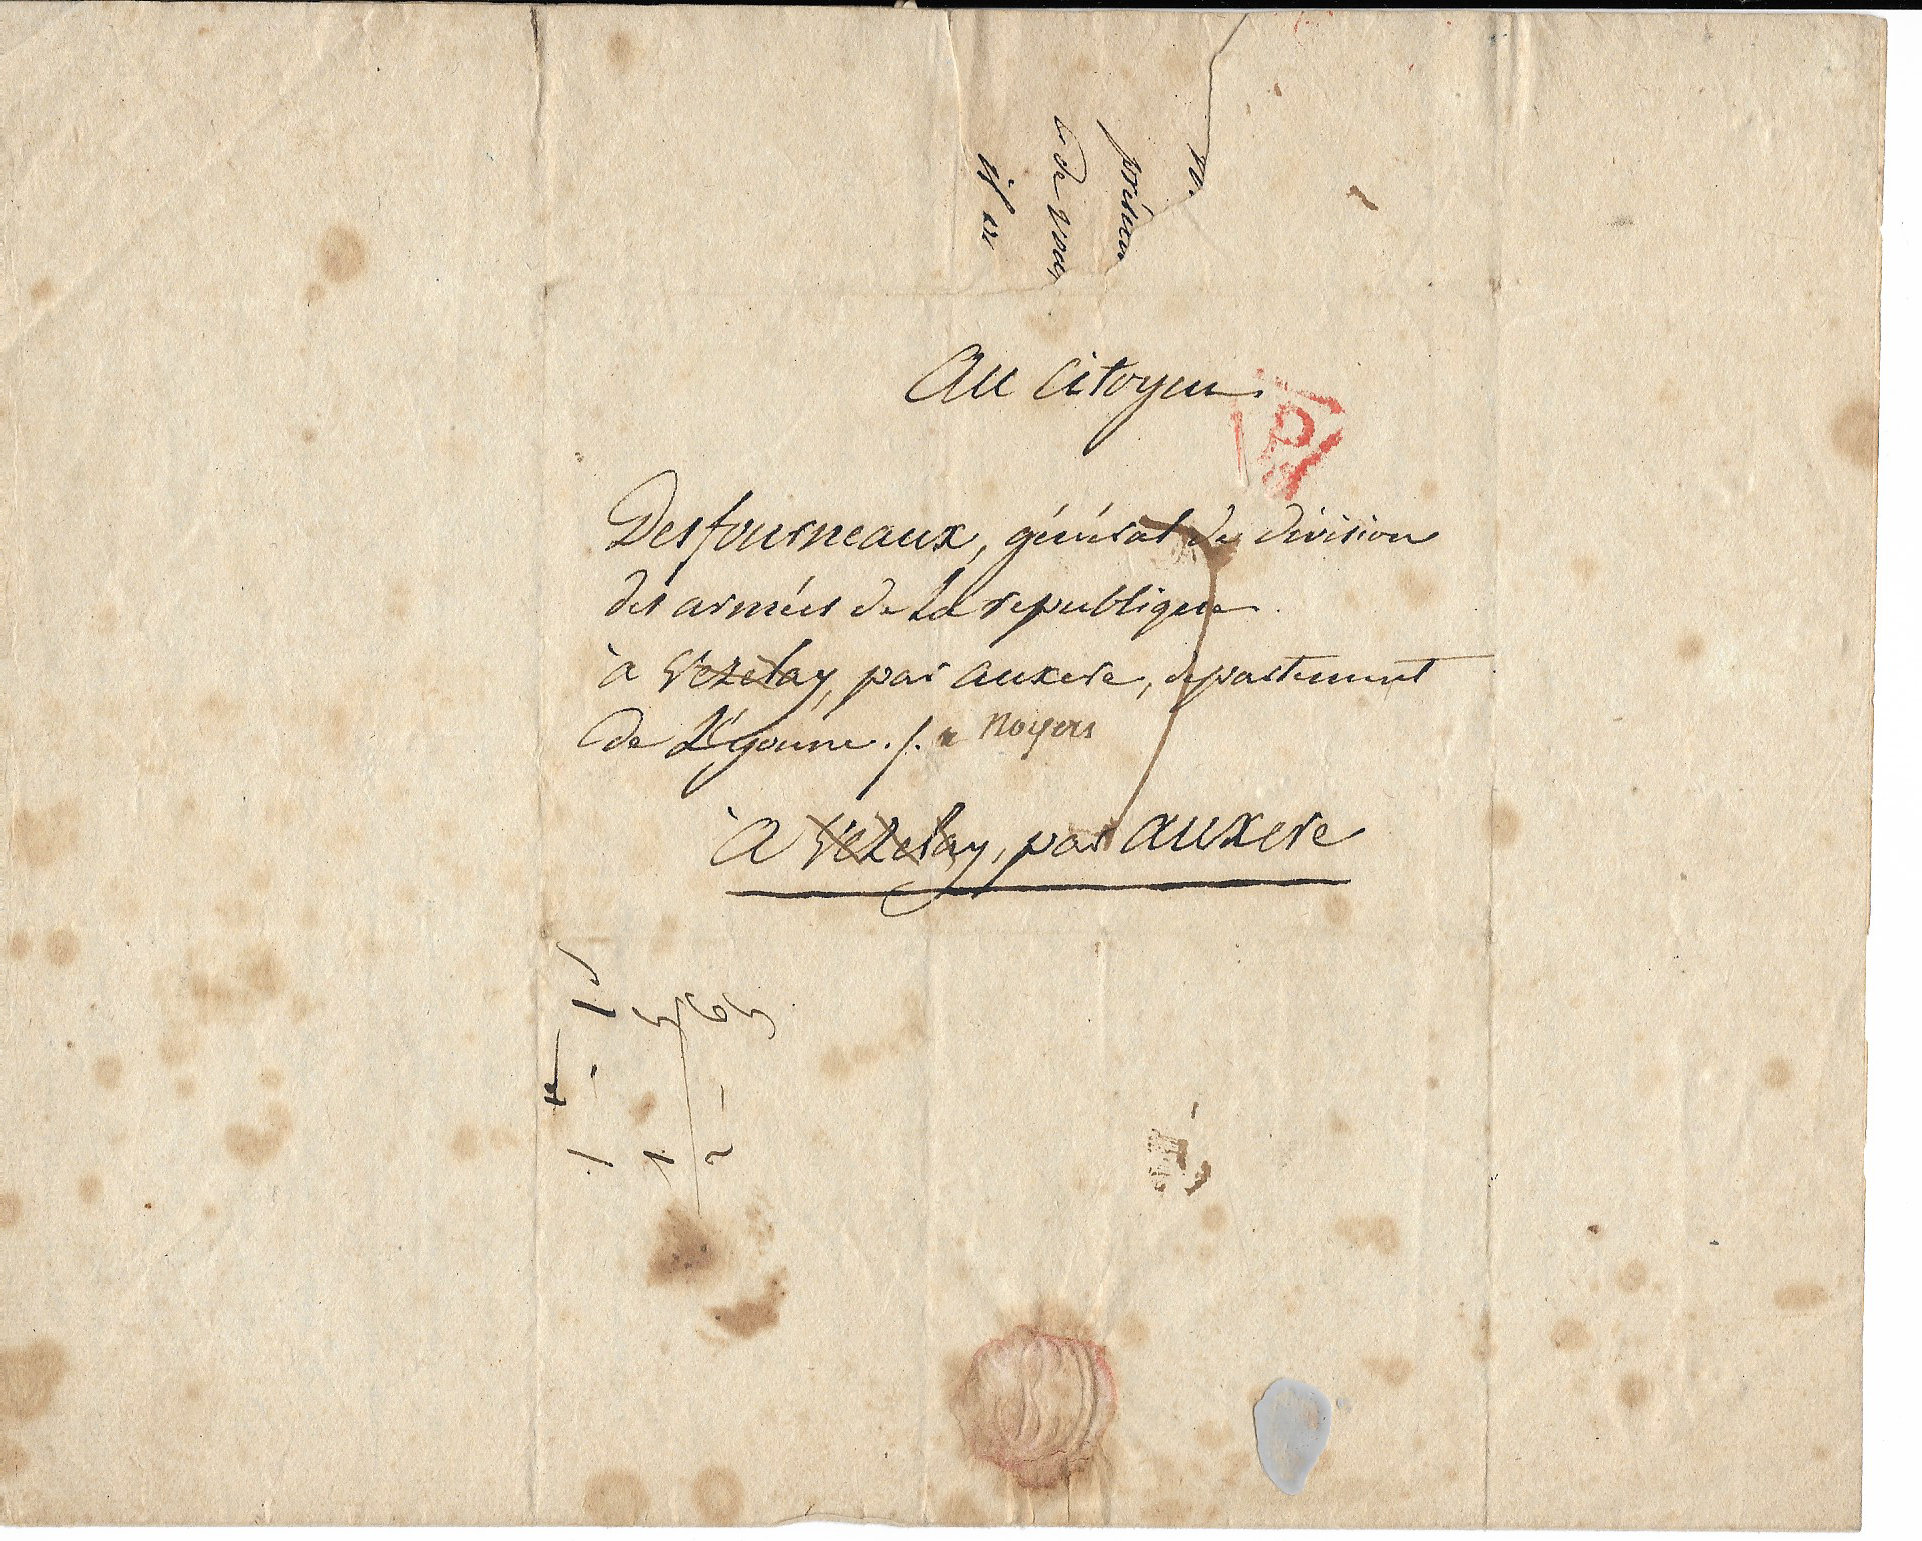 Au Citoyen
P
Desfourneaux, général de division
des armées de La republique
à Vezelay, par auxere, departement
de L'yonne ./. a Noyers
à Vezelay, par auxere